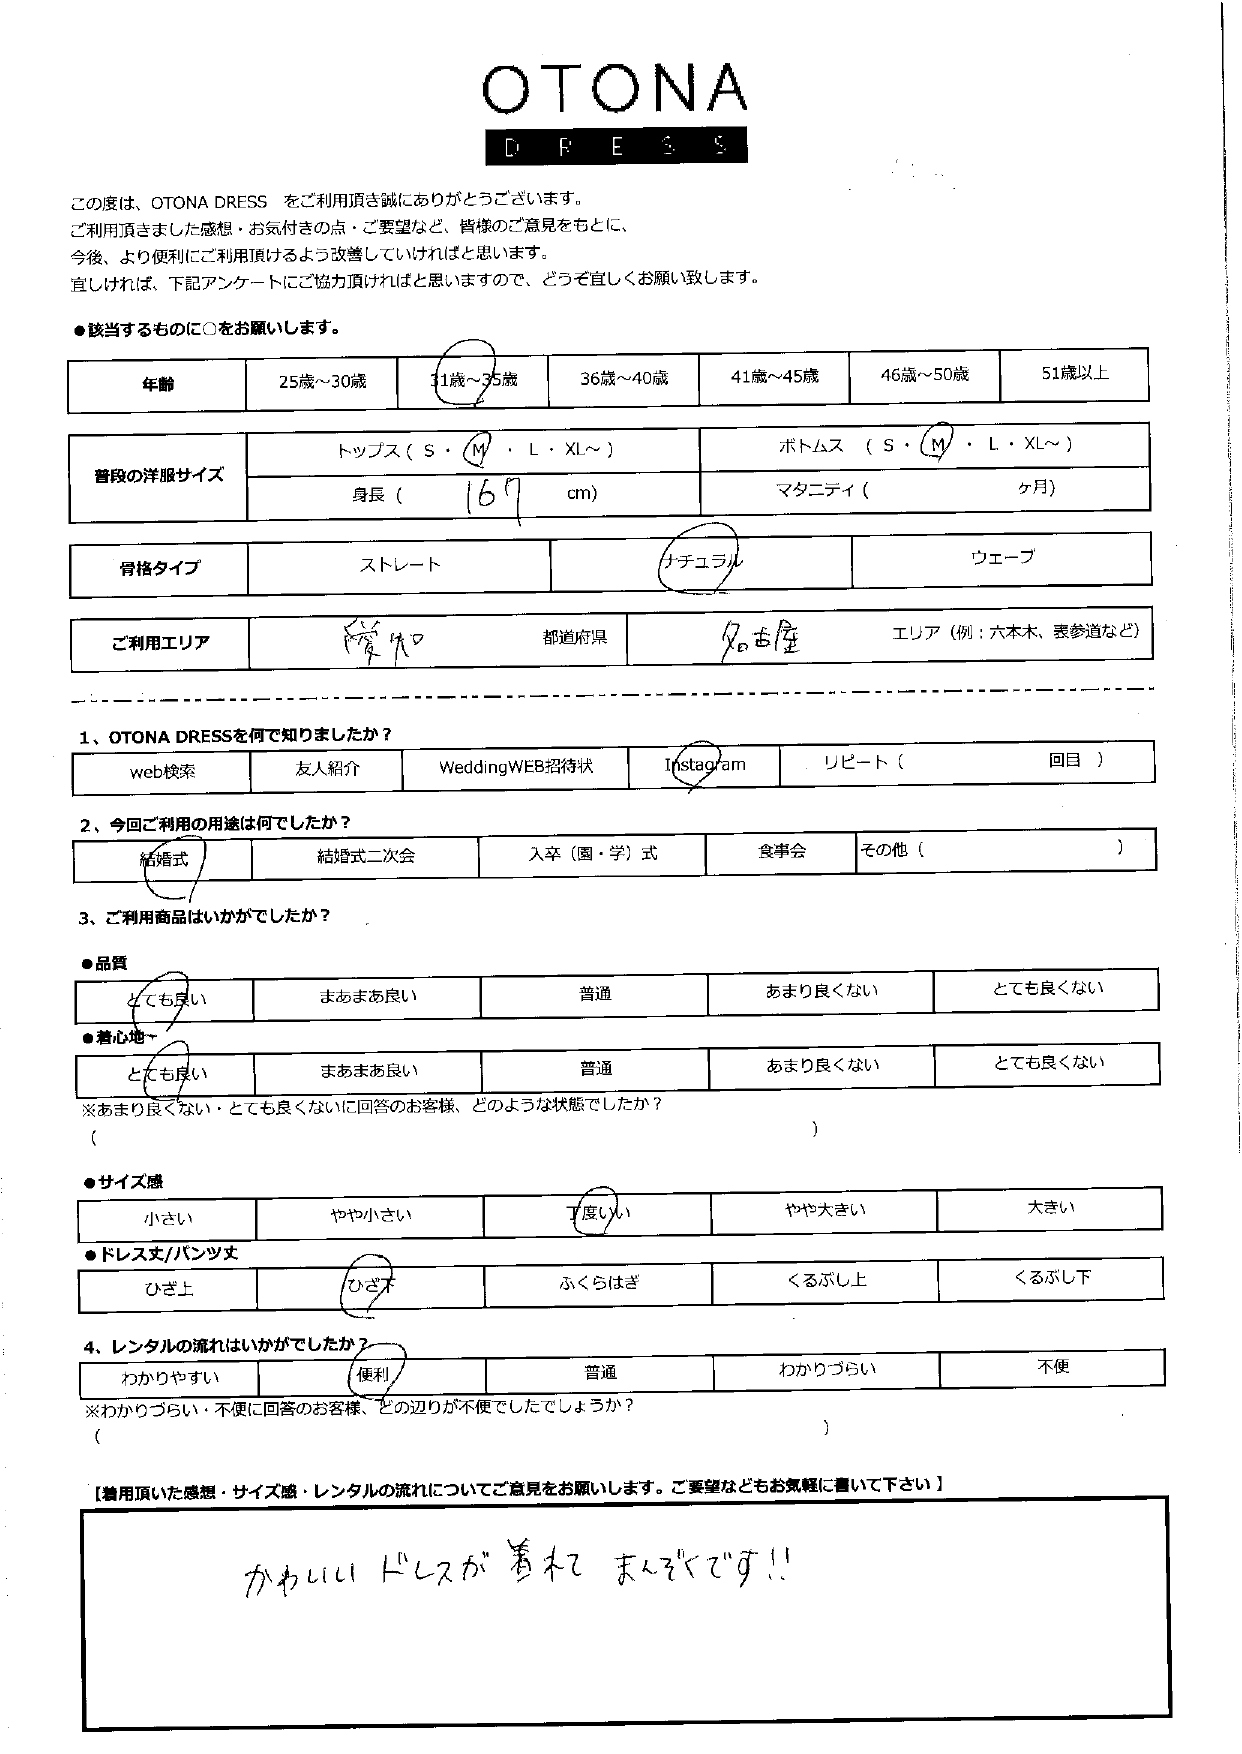 OTONA
DRESS
この度は、OTONA DRESS　をご利用頂き誠にありがとうございます。
ご利用頂きました感想・お気付きの点・ご要望など、皆様のご意見をもとに、
今後、より便利にご利用頂けるよう改善していければと思います。
宜しければ、下記アンケートにご協力頂ければと思いますので、どうぞ宜しくお願い致します。
●該当するものに○をお願いします。
年齢 25歳～30歳 31歳～35歳 36歳～40歳 41歳～45歳 46歳～50歳 51歳以上
普段の洋服サイズ トップス ( S ・ M ・ L ・ XL～ ) ボトムス ( S ・ M ・ L ・ XL～ )
身長 ( 167 cm) マタニティ ( ケ月)
骨格タイプ ストレート ナチュラル ウェーブ
ご利用エリア 愛知 都道府県 名古屋 エリア（例：六本木、表参道など）
1、OTONA DRESSを何で知りましたか？
web検索 友人紹介 WeddingWEB招待状 Instagram リピート（ 回目 ）
2、今回ご利用の用途は何でしたか？
結婚式 結婚式二次会 入卒（園・学）式 食事会 その他（ ）
3、ご利用商品はいかがでしたか？
●品質
とても良い まあまあ良い 普通 あまり良くない とても良くない
●着心地
とても良い まあまあ良い 普通 あまり良くない とても良くない
※あまり良くない・とても良くないに回答のお客様、どのような状態でしたか？
( )
●サイズ感
小さい やや小さい 丁度いい やや大きい 大きい
●ドレス丈/パンツ丈
ひざ上 ひざ下 ふくらはぎ くるぶし上 くるぶし下
4、レンタルの流れはいかがでしたか？
わかりやすい 便利 普通 わかりづらい 不便
※わかりづらい・不便に回答のお客様、どの辺りが不便でしたでしょうか？
( )
【着用頂いた感想・サイズ感・レンタルの流れについてご意見をお願いします。ご要望などもお気軽に書いて下さい】
かわいいドレスが着れて まんぞくです!!